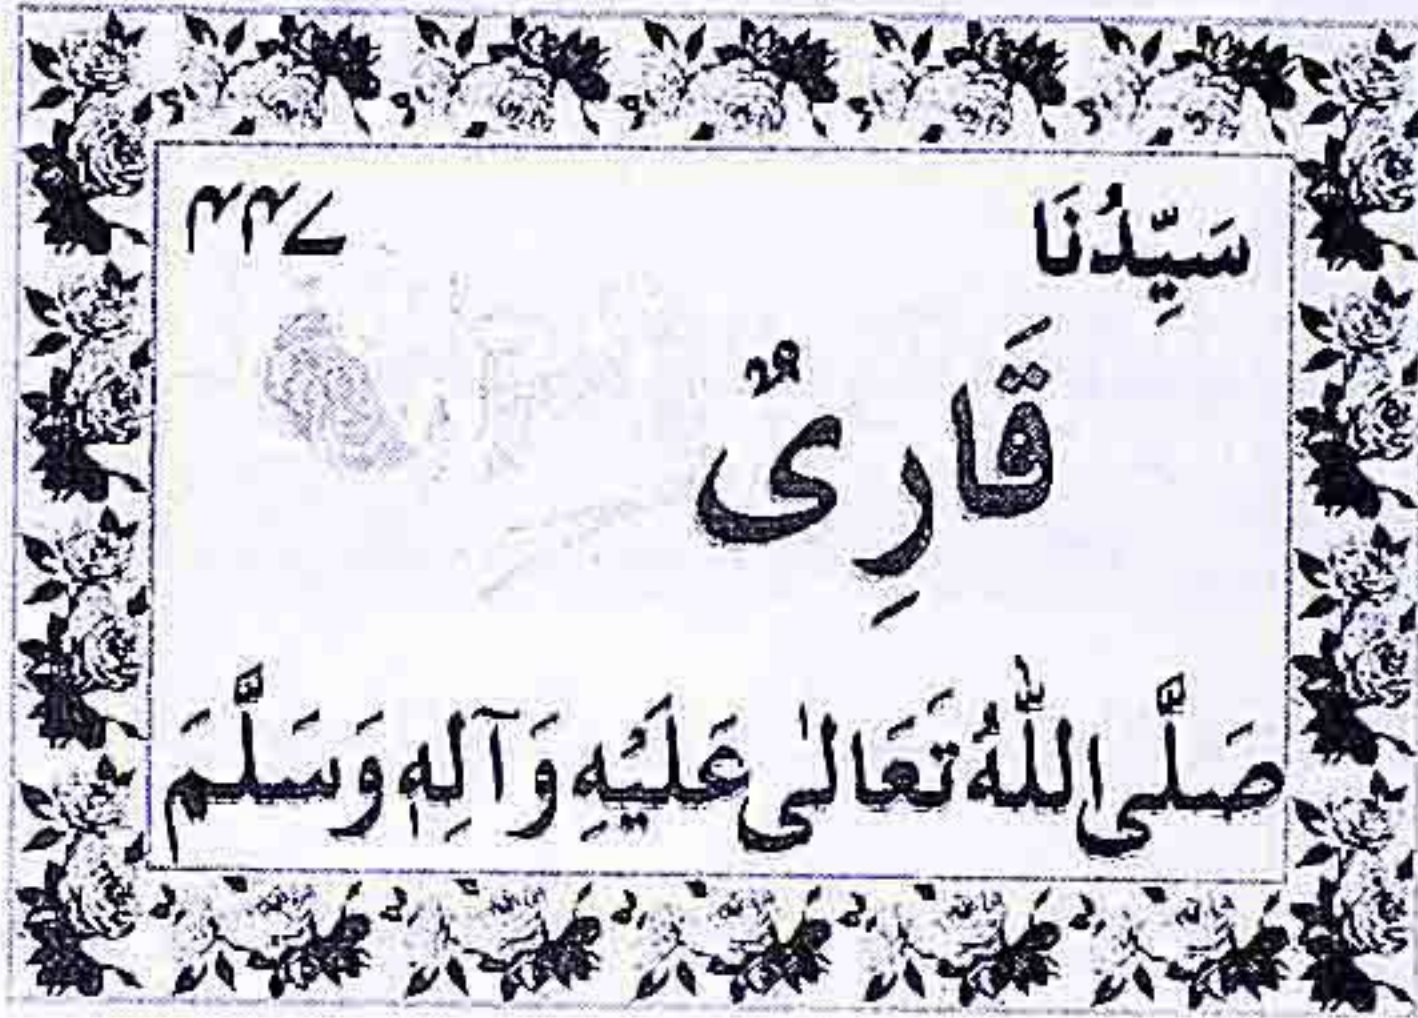 سَيِّدُنَا ۴۴۷
قَارِیٌ
صَلَّی اللّٰهُ تَعَالٰی عَلَيْهِ وَآلِهٖ وَسَلَّمَ